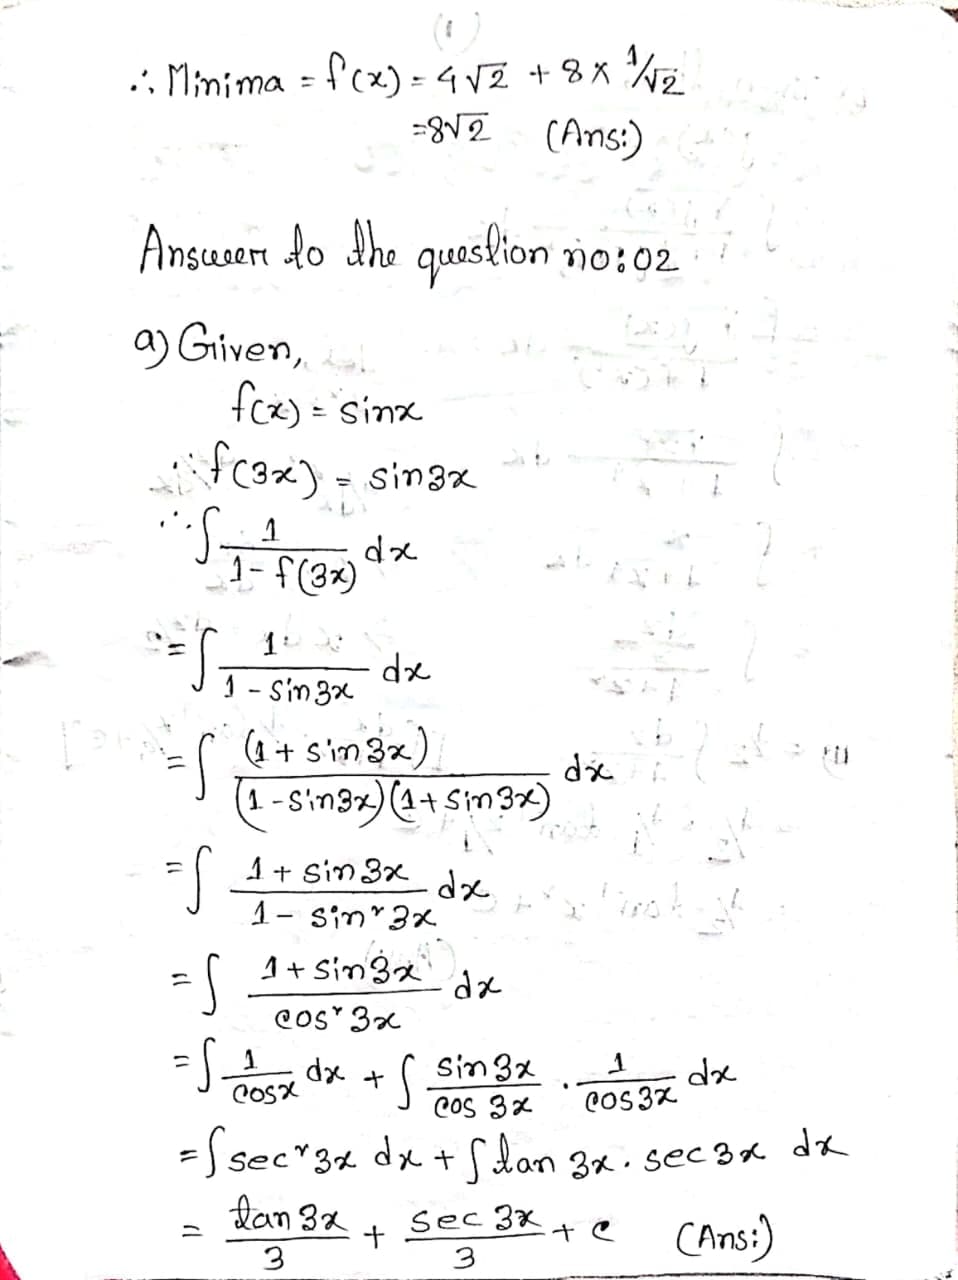 (1)
∴ Minima = f(x) = 4√2 + 8 × 1/√2
=8√2 (Ans:)
Answer to the question no: 02
a) Given,
f(x) = sinx
∴ f(3x) = sin3x
∴ ∫ 1/(1-f(3x)) dx
= ∫ 1/(1 - sin3x) dx
= ∫ (1+ sin3x)/((1-sin3x)(1+sin3x)) dx
= ∫ (1+ sin3x)/(1- sin²3x) dx
= ∫ (1+sin3x)/(cos²3x) dx
= ∫ 1/cosx dx + ∫ sin3x/cos3x . 1/cos3x dx
= ∫ sec²3x dx + ∫ tan 3x . sec3x dx
= tan3x/3 + sec3x/3 + c (Ans:)